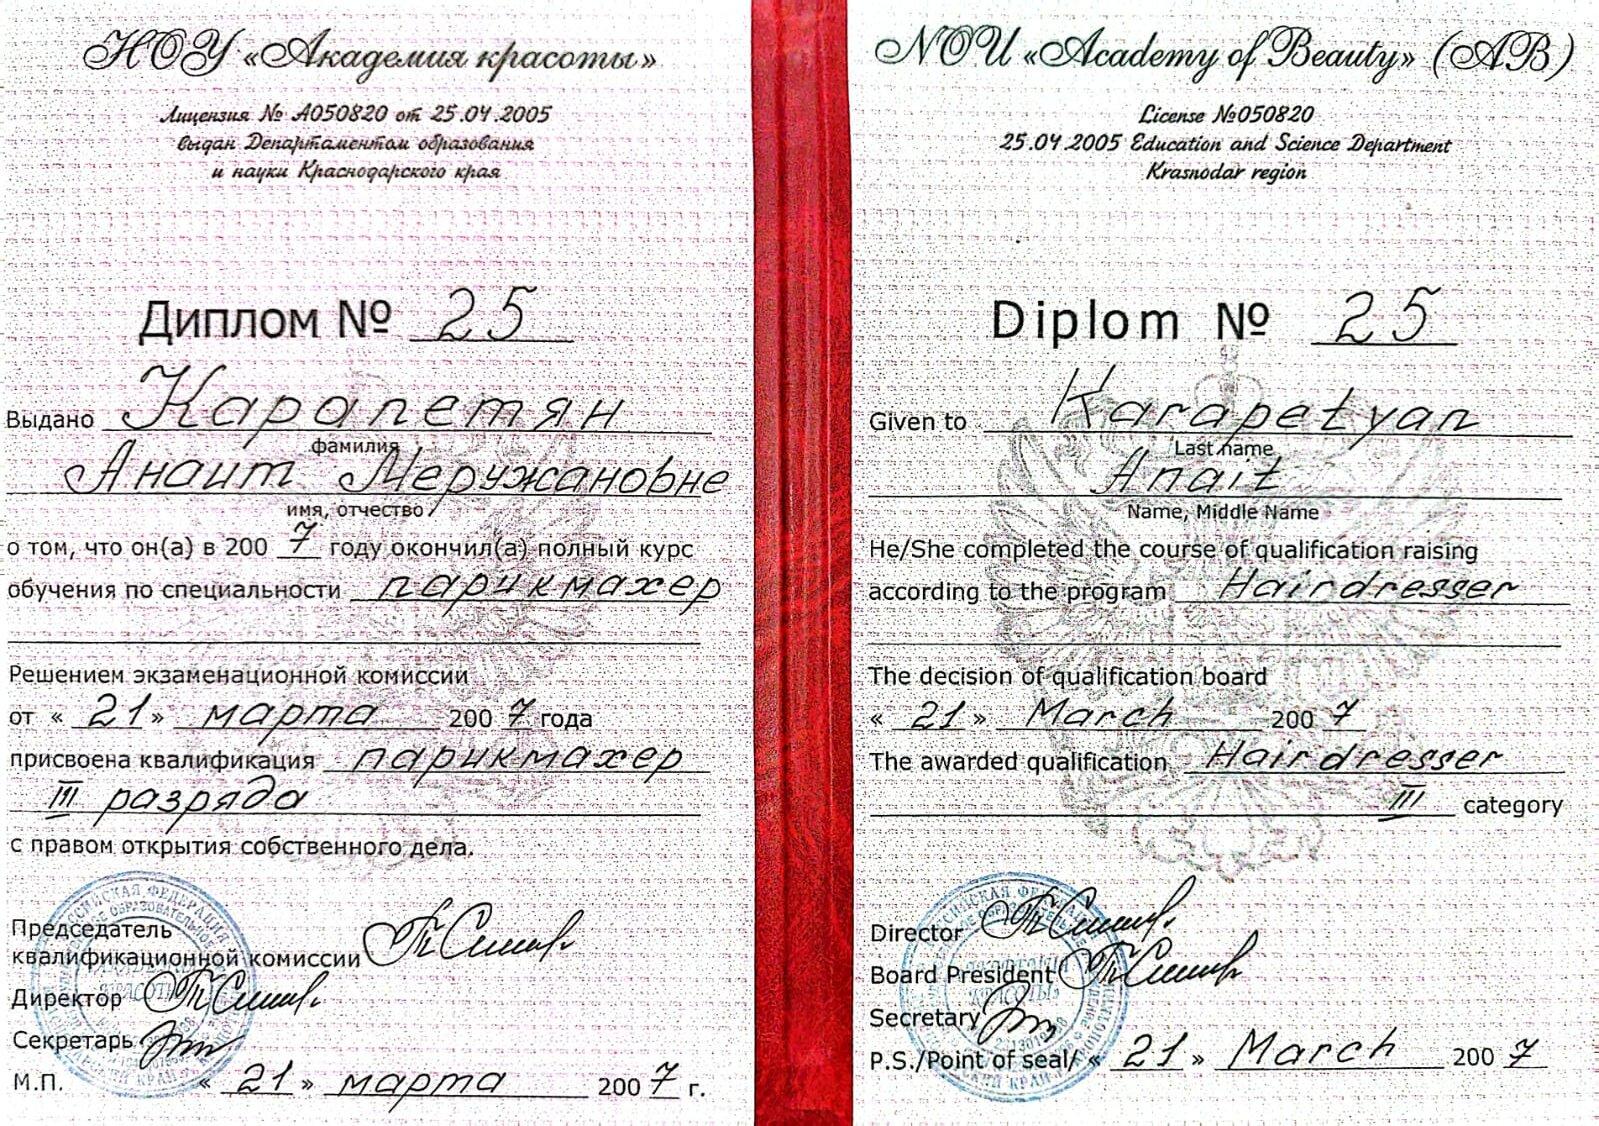 НОУ «Академия красоты»
Лицензия № А050820 от 25.04.2005
выдан Департаментом образования
и науки Краснодарского края
Диплом № 25
Выдано Карапетян
фамилия
Анаит Меружановне
имя, отчество
о том, что он(а) в 2007 году окончил(а) полный курс
обучения по специальности парикмахер
Решением экзаменационной комиссии
от « 21 » марта 2007 года
присвоена квалификация парикмахер
III разряда
с правом открытия собственного дела.
Председатель
квалификационной комиссии
Директор
Секретарь
М.П. « 21 » марта 2007 г.
NOU «Academy of Beauty» (AB)
License №050820
25.04.2005 Education and Science Department
Krasnodar region
Diplom № 25
Given to Karapetyan
Last name
Anait
Name, Middle Name
He/She completed the course of qualification raising
according to the program Hairdresser
The decision of qualification board
« 21 » March 2007
The awarded qualification Hairdresser
III category
Director
Board President
Secretary
P.S./Point of seal/ « 21 » March 2007